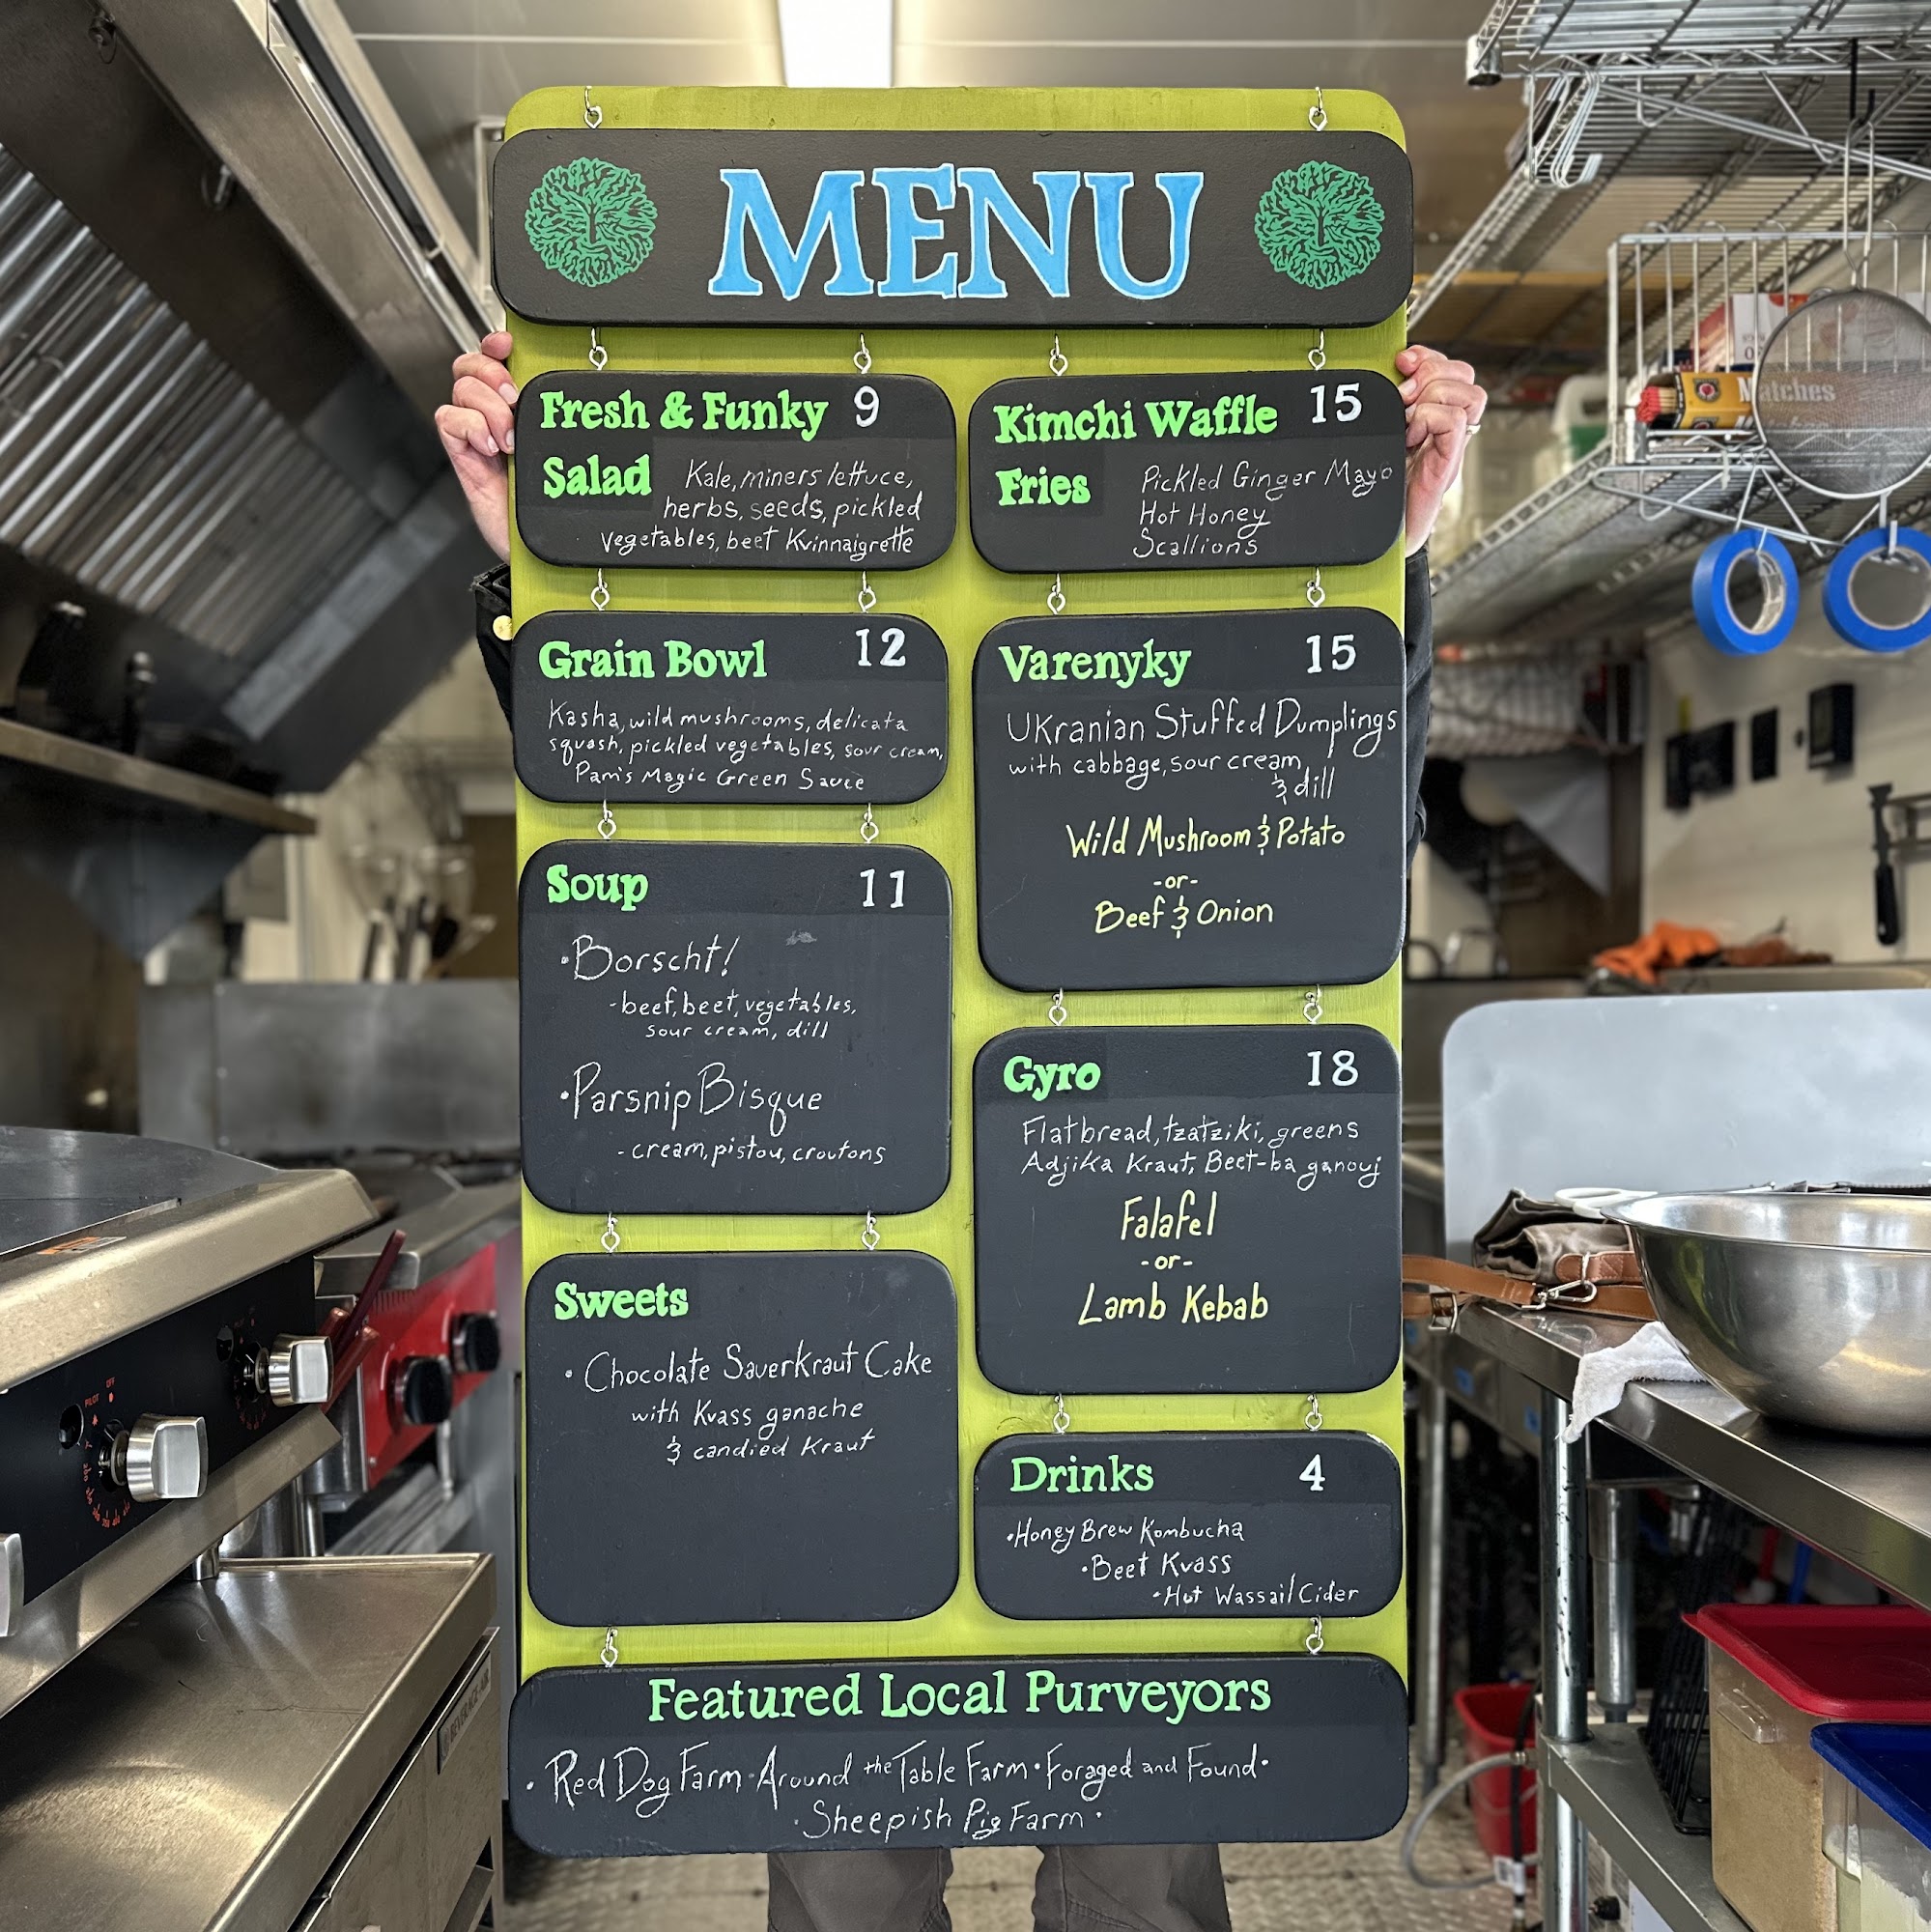 MENU
Fresh & Funky 9
Salad Kale, miners lettuce,
herbs, seeds, pickled
vegetables, beet Kvinnaigrette
Grain Bowl 12
Kasha, wild mushrooms, delicata
squash, pickled vegetables, sour cream,
Pam's Magic Green Sauce
Soup 11
·Borscht!
-beef, beet, vegetables,
sour cream, dill
·Parsnip Bisque
-cream, pistou, croutons
Sweets
· Chocolate Sauerkraut Cake
with Kvass ganache
& candied Kraut
Kimchi Waffle 15
Fries Pickled Ginger Mayo
Hot Honey
Scallions
Varenyky 15
Ukranian Stuffed Dumplings
with cabbage, sour cream
& dill
Wild Mushroom & Potato
-or-
Beef & Onion
Gyro 18
Flatbread, tzatziki, greens
Adjika Kraut, Beet-ba ganouj
Falafel
-or-
Lamb Kebab
Drinks 4
·Honey Brew Kombucha
·Beet Kvass
·Hot Wassail Cider
Featured Local Purveyors
· Red Dog Farm · Around the Table Farm · Foraged and Found ·
· Sheepish Pig Farm ·
Matches